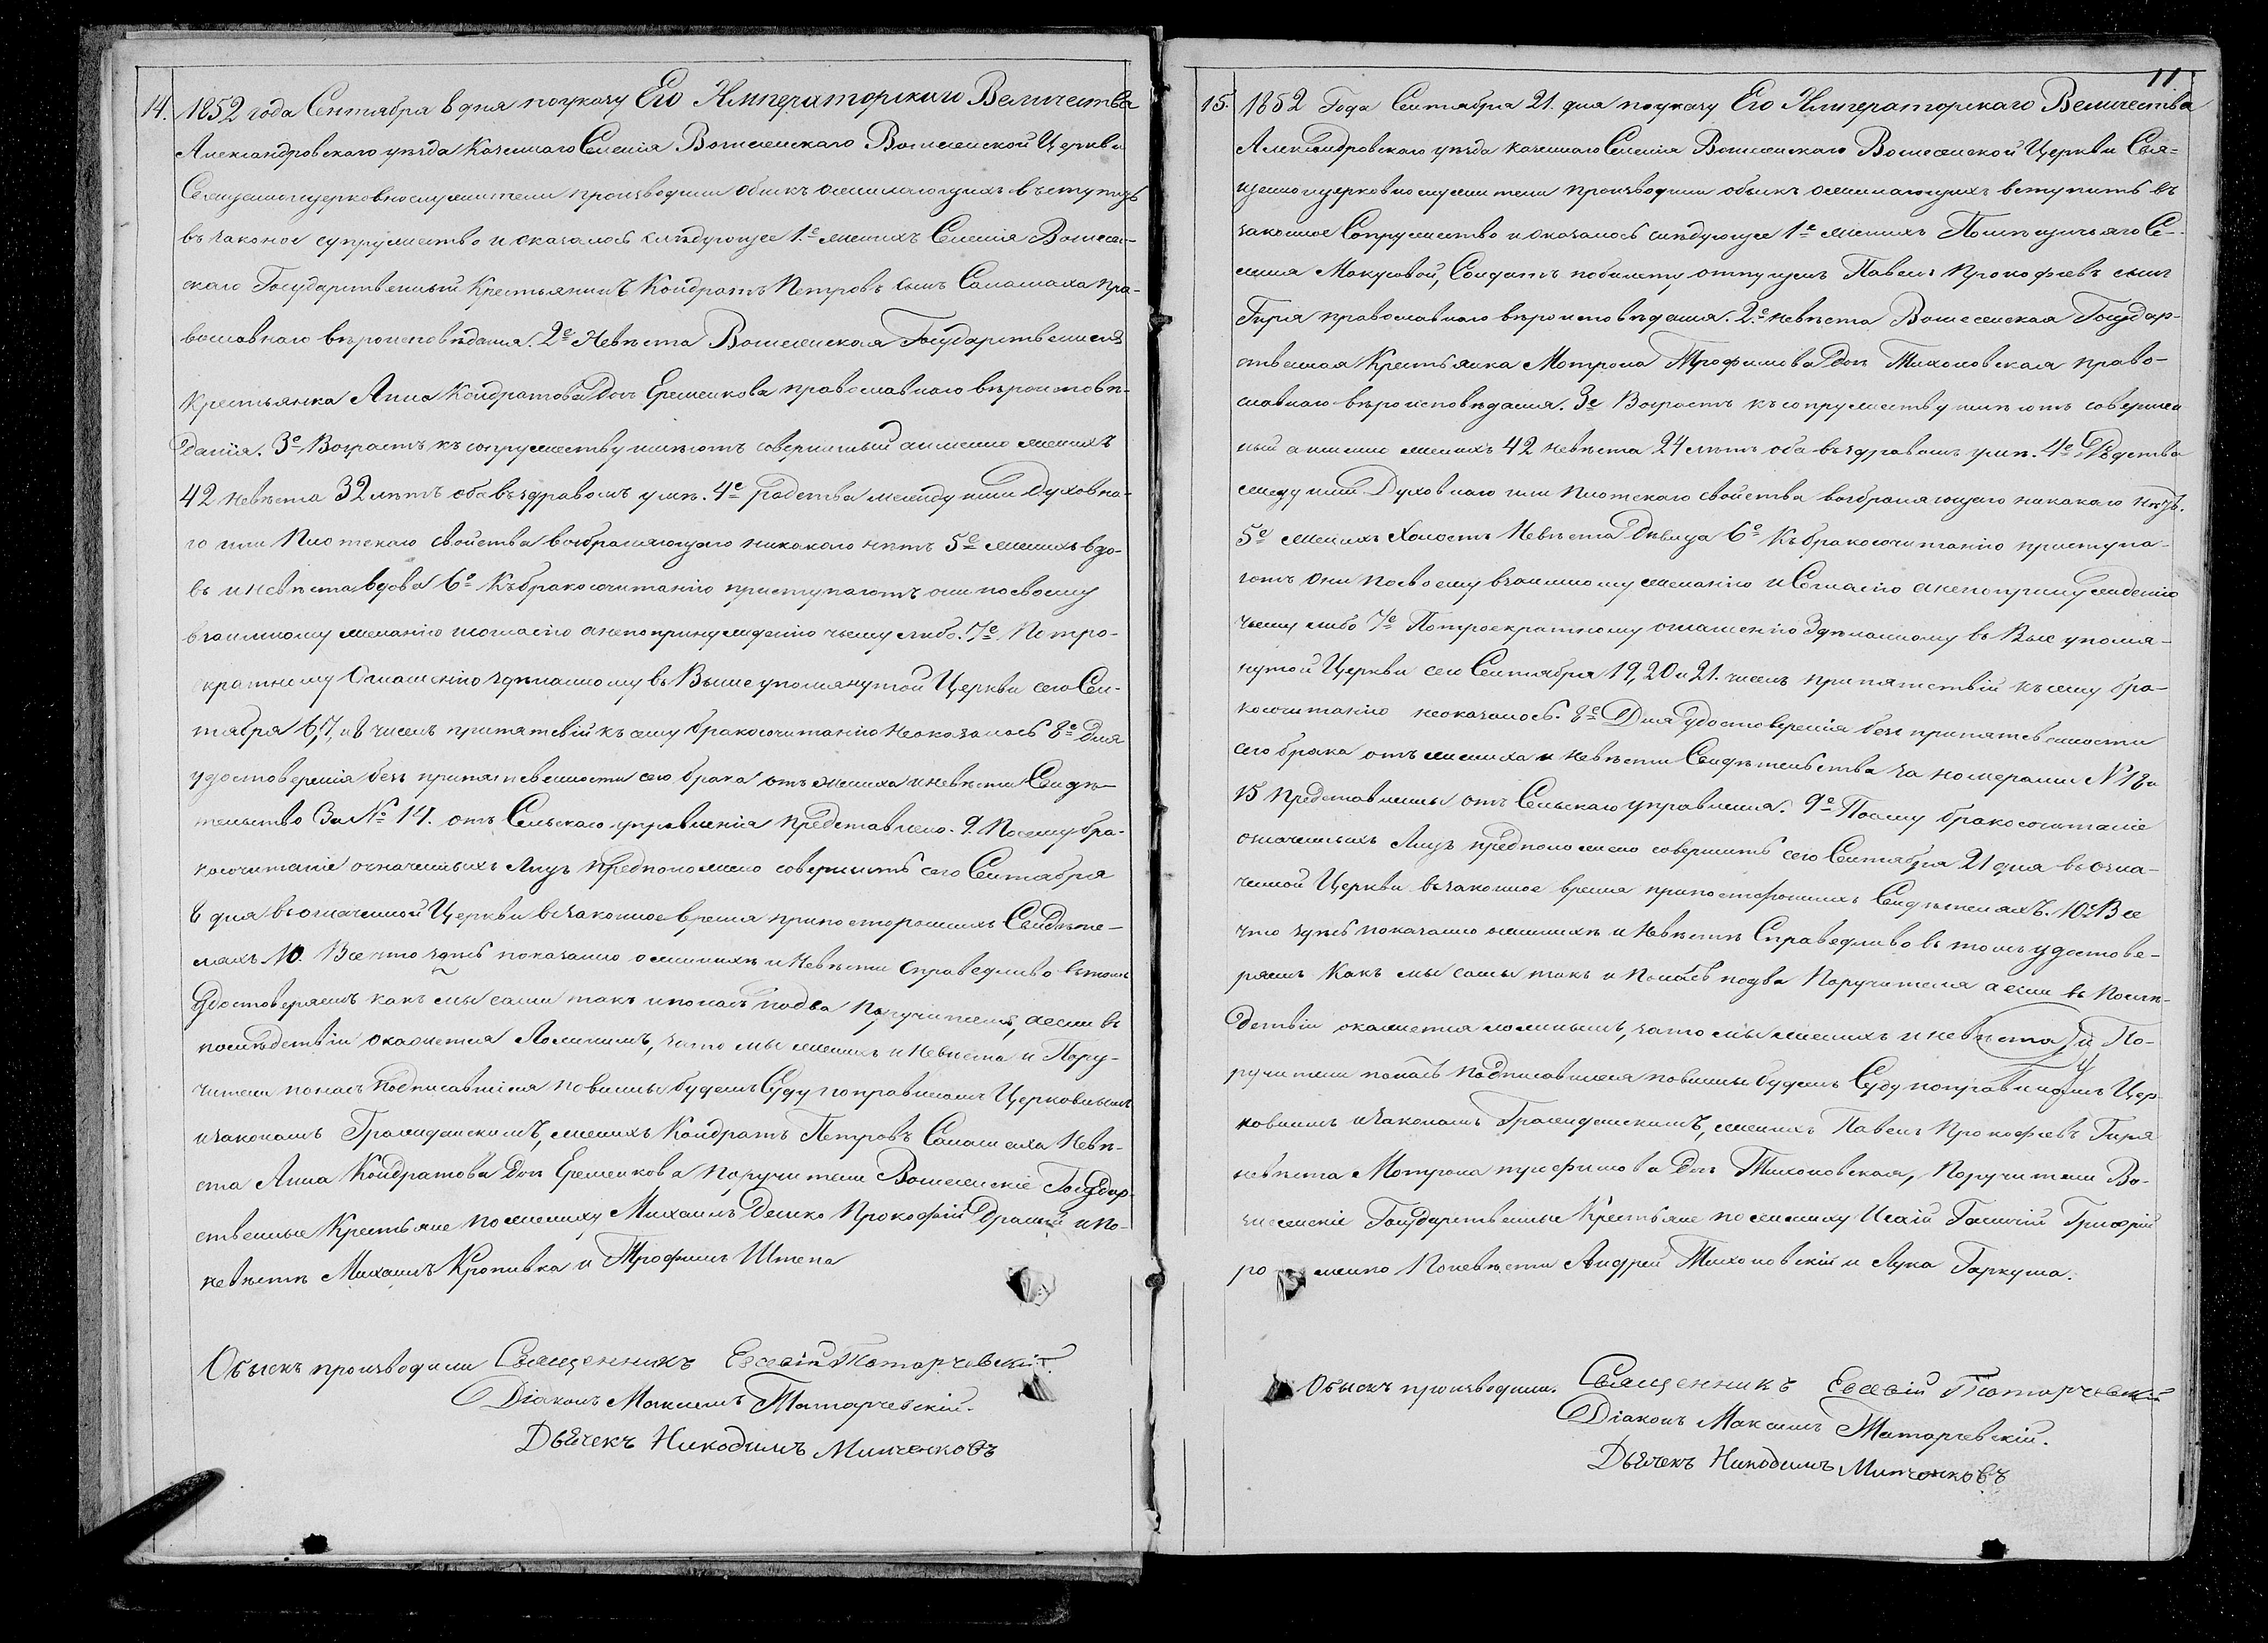 14. 1852 года Сентября 8 дня по указу Его Императорскаго Величества
Александровскаго уѣзда Казеннаго Селенія Вознесенскаго Вознесенской Церкви
Священноцерковнослужители производили обыскъ о желающихъ въступить
въ законое супружество и оказалось слѣдующее 1.е женихъ Селенія Вознесен-
скаго Государственный Крестьянинъ Кондратъ Петровъ сынъ Саламаха пра-
вославнаго вѣроисповѣданія. 2е Невѣста Вознесенская Государственная
Крестьянка Анна Кондратова дочь Еременкова православнаго вѣроисповѣ-
данія. 3е Возрастъ къ супружеству имѣютъ совершеный а именно женихъ
42 невѣста 32 лѣтъ оба въ здравомъ умѣ. 4е родства между ими Духовна-
го или Плотскаго свойства возбраняющаго никакого нѣтъ 5е женихъ вдо-
въ и невѣста вдова 6е Къ бракосочитанію приступаютъ они по своему
взаимному желанію и согласію а не по принужденію чьему либо. 7е По тро-
екратному Оглашенію здѣланному въ Выше упомянутой Церкви сего Сен-
тября 6, 7, и 8 чиселъ припятствій къ сему бракосочитанію неоказалось 8е Для
удостоверенія безъ припятсвенности сего брака отъ жениха и невѣсты Свидѣ-
тельство За № 14. отъ Сельскаго управленія Представлено. 9. По сему бра-
косочитаніе означенныхъ Лицъ предположено совершить сего Сентября
8 дня въ означенной Церкви въ законное время при постороннихъ Свидѣте-
ляхъ. 10. Все что здѣсь показанно о женихѣ и невѣсти справедливо въ томъ
Удостоверяемъ какъ мы сами такъ и по насъ по два поручителя, а если въ
послѣдствіи окажется Ложнымъ, за то мы женихъ и Невѣста и Пору-
чители по насъ Подписавшіеся повинны будемъ Суду по правиламъ Церковнымъ
и законамъ Гражданскимъ, женихъ Кондратъ Петровъ Саламаха Невѣ-
ста Анна Кондратова Дочь Еременкова поручители Вознесенскіе Государ-
ственные Крестьяне по жениху Михаилъ Демко Прокофій и по
невѣстѣ Михаилъ Кропивка и Трофимъ Штепа
Обыскъ производили Священникъ Евсевій Татарчевскій.
Діаконъ Максимъ Татарчевскій.
Дьячекъ Никодимъ Минченковъ
11
15. 1852 Года Сентября 21. дня по указу Его Императорскаго Величества
Александровскаго уѣзда казеннаго Селенія Вознесенскаго Вознесенской Церкви Свя-
щенноцерковнослужители производили обыскъ о желающихъ вступить въ
законное Сопружество и оказалось слѣдующее 1е женихъ Помѣщичьяго Се-
ленія Мокусовой, Солдатъ по билету отпущенъ Павелъ Прокофіевъ сынъ
Гиря православнаго вѣроисповѣданія. 2.е невѣста Вознесенская Государ-
ственная Крестьянка Мотрона Трофимова Дочь Тихоновская право-
славнаго вѣроисповѣданія. 3е Возрастъ къ сопружеству имѣютъ соверше
ный а именно женихъ 42 невѣста 24 лѣтъ оба въ здравомъ умѣ. 4е Родства
между ими Духовнаго или Плотскаго свойства возбраняющаго никакаго нѣтъ.
5е женихъ Холостъ Невѣста Дѣвица 6е Къ бракосочитанію приступа-
ютъ Они по своему взаимному желанію и Согласію а не по принужденію
чьему либо 7е По троекратному оглашенію Здѣланному въ Выше упомя-
нутой Церкви сего Сентября 19, 20 и 21. чиселъ припятствій къ сему бра-
косочитанію неоказалось. 8е Для удостоверенія безъ припятсвенности
сего брака отъ жениха и невѣсты Свидѣтельства за номерами № 18 и
15 представлены отъ Сельскаго управленія. 9е По сему бракосочитаніе
означенныхъ Лицъ предположено совершить сего Сентября 21 дня въ озна-
ченной Церкви въ законное время при постороннихъ Свидѣтеляхъ. 10е Все
что здѣсь показанно о женихѣ и Невѣстѣ Справедливо въ томъ удостове-
ряемъ какъ мы самы такъ и по насъ по два Поручителя а если въ послѣ-
дствіи окажется ложнымъ, за то мы женихъ и невѣста и По-
ручители по насъ подписавшіеся повинны будемъ Суду по правиламъ Цер-
ковнымъ и законамъ Гражданскимъ, женихъ Павелъ Прокофіевъ Гиря
невѣста Мотрона трофимова Дочь Тихоновская, Поручители Во-
знесенскіе Государственные Крестьяне по жениху Григорій
Поневѣсти Андрей Тихоновскій и Лука Гаркуша.
Обыскъ производили. Священникъ Евсевій Татарчевскій
Діаконъ Максимъ Татарчевскій.
Дьячекъ Никодимъ Минченковъ